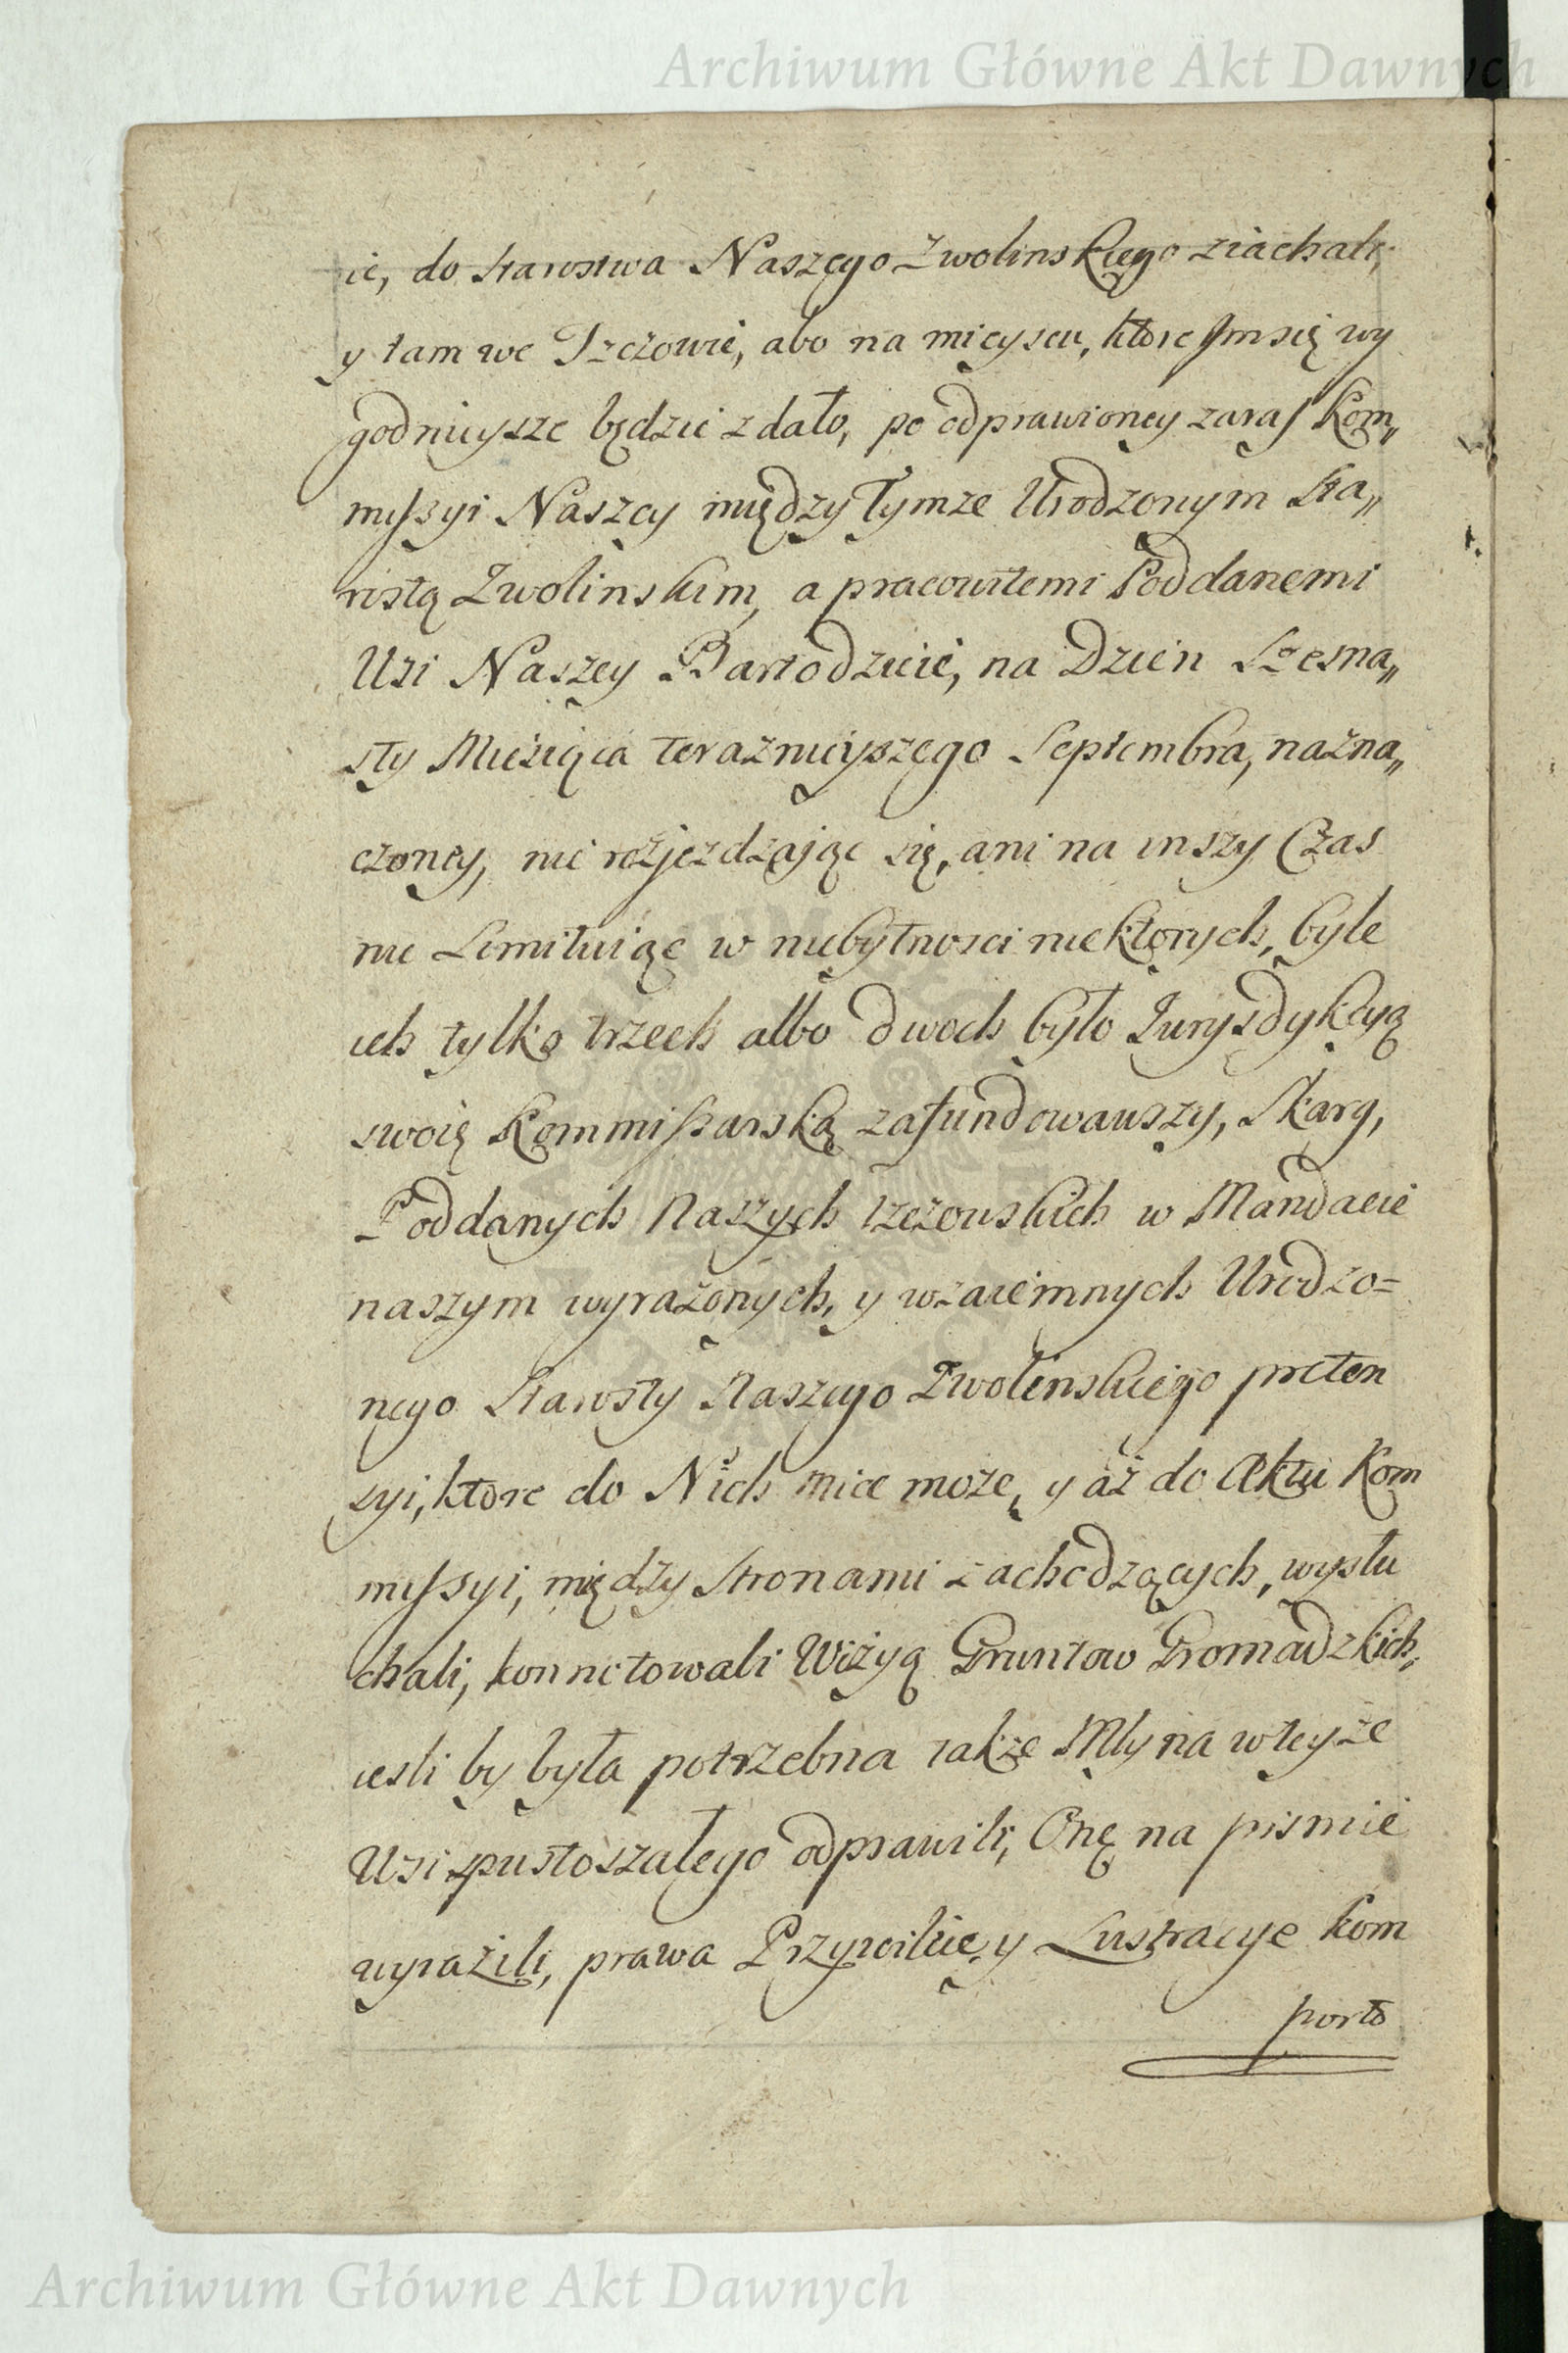 Archiwum Główne Akt Dawnych
ie, do Starostwa Naszego Zwolinskiego ziachali,
y tam we Jzczowie, abo na mieyscu, ktore Jm się wy
godnieysze będzie zdało, po odprawioney zaras Kom„
missyi Naszey między Tymze Urodzonym Sta„
rostą Zwolinskim, a pracowitemi Poddanemi
Wsi Naszey Bartodzieie, na Dzien Szesna„
sty Miesiąca teraznieyszego Septembra, nazna„
czoney, nie rozjezdzaiąc się, ani na inszy Czas
nie Limituiąc w niebytnosci niektorych, byle
ich tylko trzech albo dwoch było Jurysdykcyą
swoię Kommissarską zafundowawszy, Skarg,
Poddanych Naszych Jzczowskich w Mandacie
naszym wyrażonych, y wzaiemnych Urodzo=
nego Starosty Naszego Zwolinskiego preten
syi, ktore do Nich miec może, y aż do Aktu Kom
missyi, między Stronami zachodzących, wysłu
chali, konnotowali Wizyą Gruntow Gromadzkich,
iesli by była potrzebna także Młyna w teyże
Wsi spustoszałego odprawili, Onę na pismie
wyrazili, prawa Przywileie, y Lustracye kom
porto
Archiwum Główne Akt Dawnych